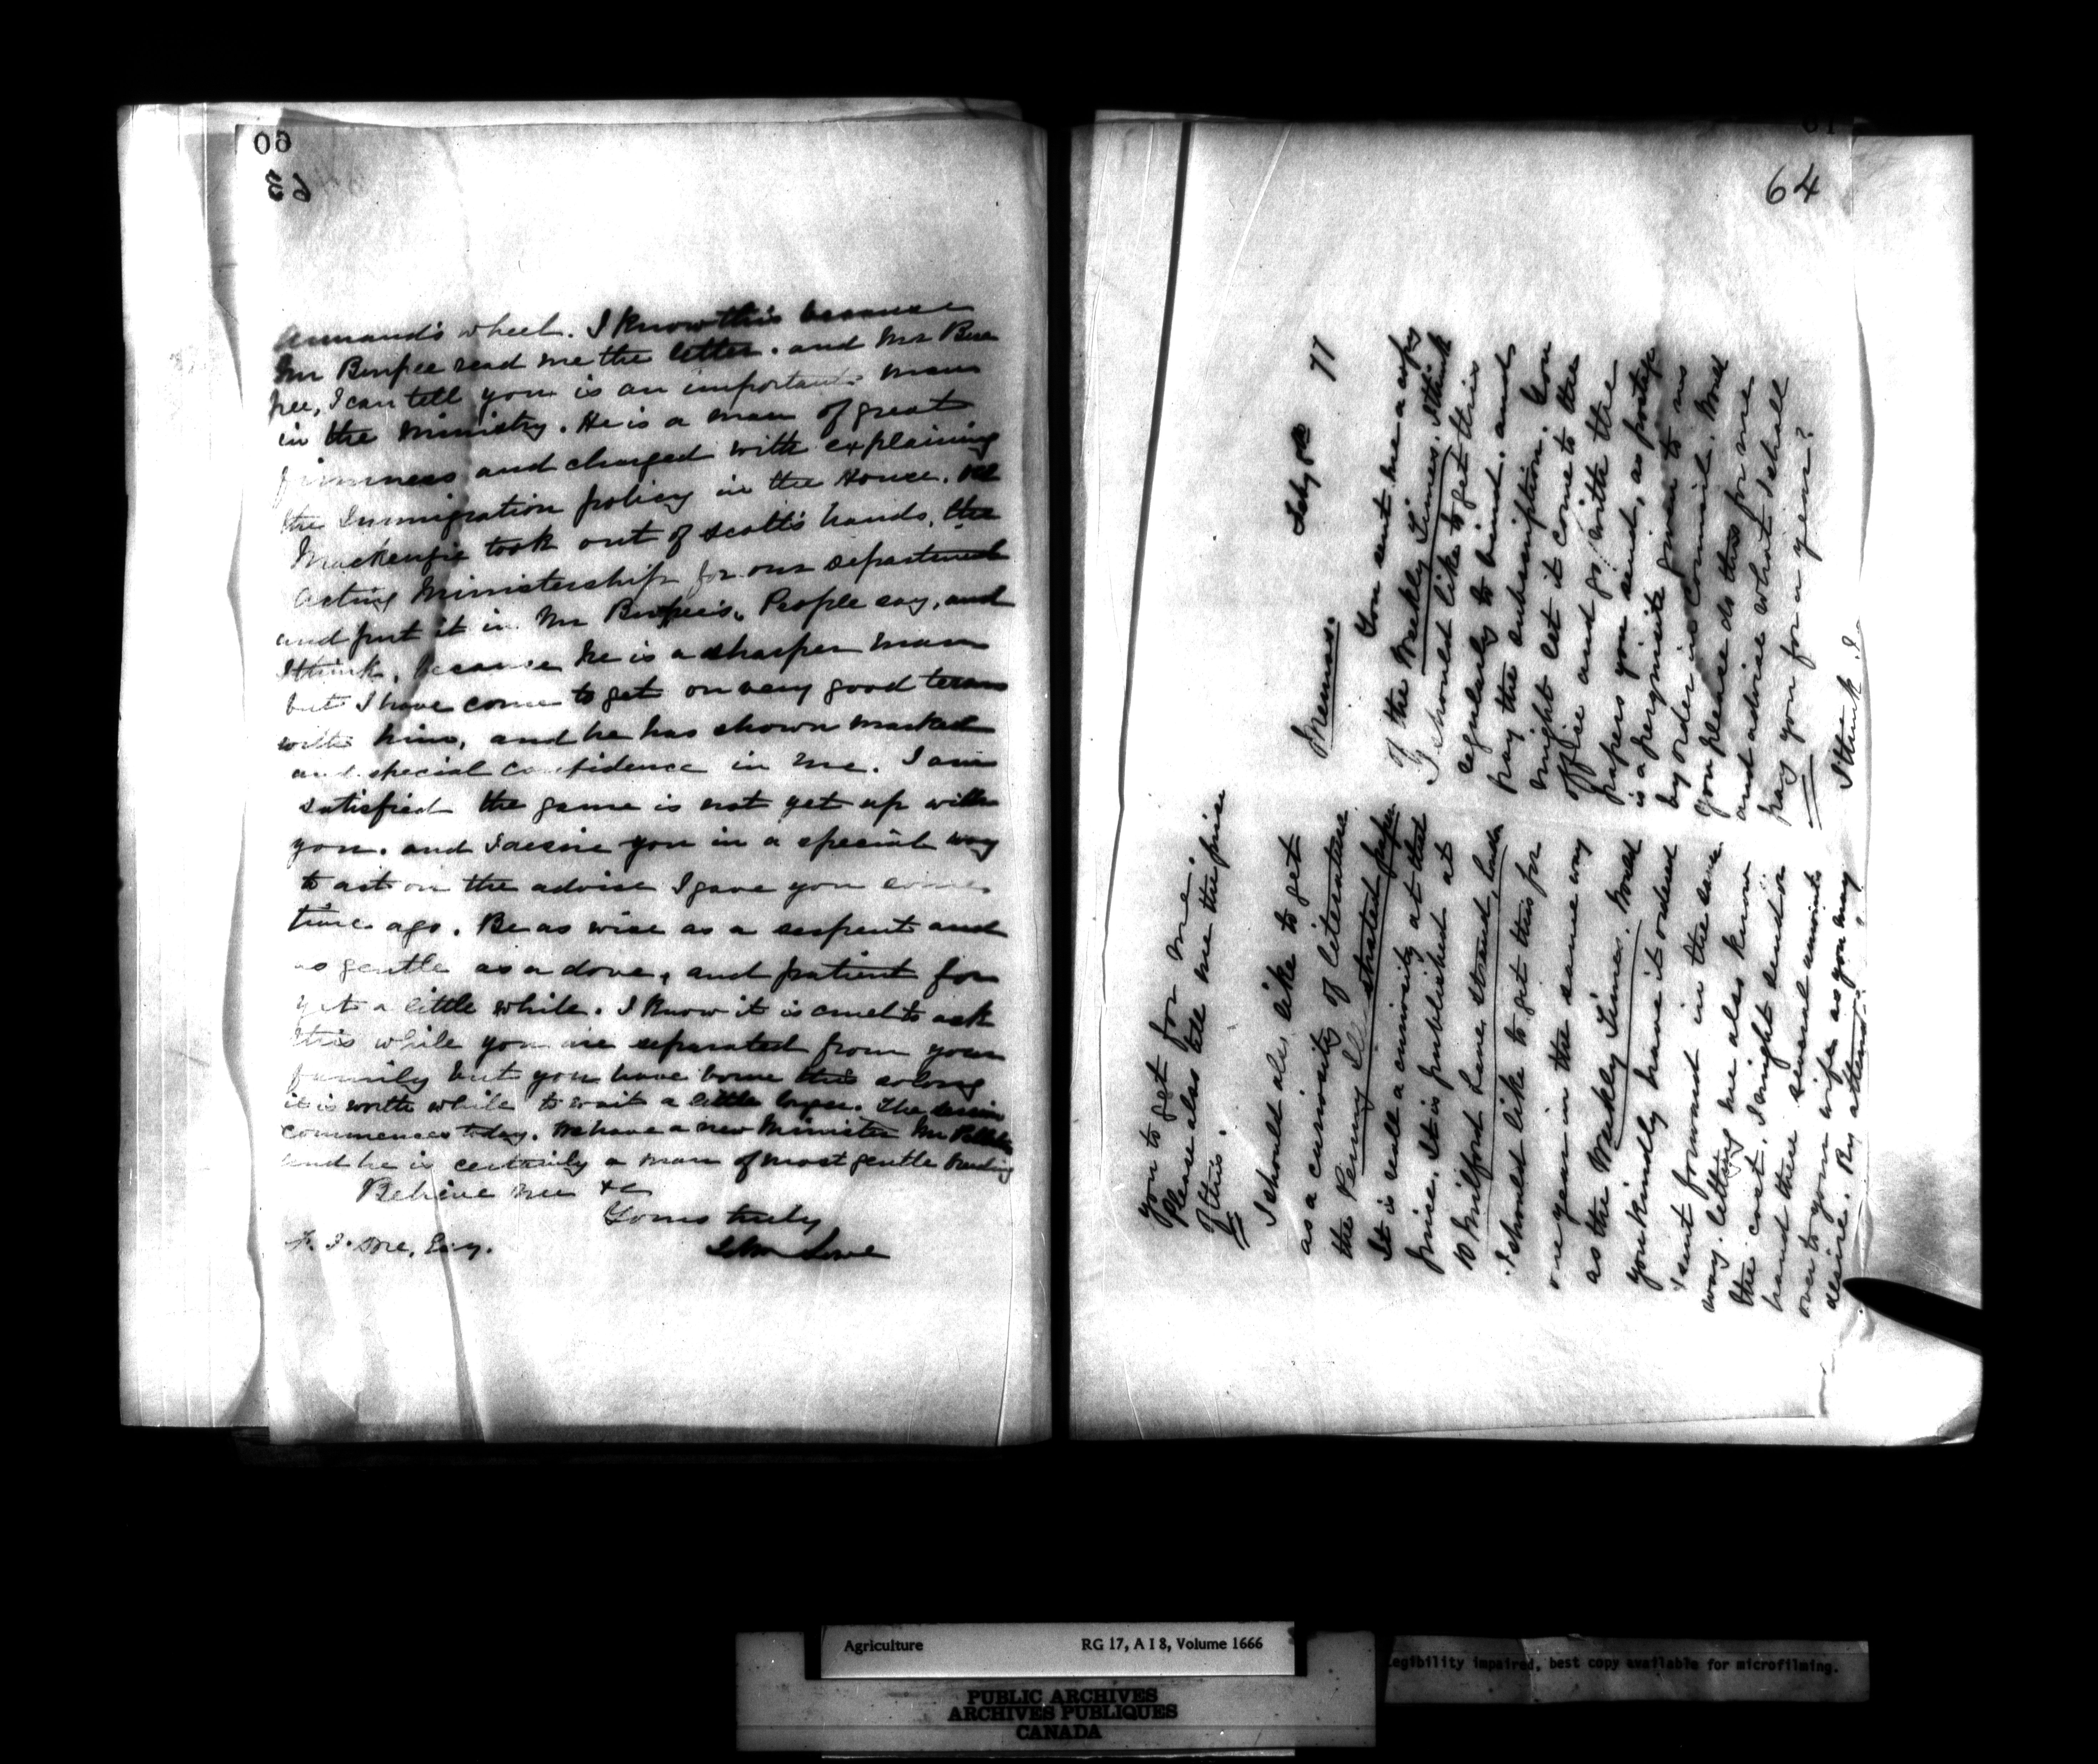 60
63
Armand's wheel. I know this because
Mr Burpee read me the letter. and Mr Bur
pee, I can tell you is an important man
in the ministry. He is a man of great
firmness and charged with explaining
the Immigration policy in the House.
Mackenzie took out of Scott's hands, the
Acting Ministership for our department
and put it in Mr Burpee's. People say, and
I think, because he is a sharper man
but I have come to get on very good terms
with him, and he has shown marked
and special confidence in me. I am
satisfied the game is not yet up with
you. and I desire you in a special way
to act on the advise I gave you some
time ago. Be as wise as a serpent and
as gentle as a dove, and patient for
yet a little while. I know it is cruel to ask
this while you are separated from your
family but you have borne this so long
it is worth while to wait a little longer. The session
commences today. We have a new Minister Mr Pelletier
and he is certainly a man of most gentle breeding
Believe me &c
Yours truly
John Lowe
Esq.
61
64
Feby 77
Memo.
You sent me a copy
of the Weekly Times. I think
I should like to get this
regularly to bind. and
pay the subscription. You
might let it come to the
office and go with the
papers you send, as postage
is a perquisite given to us
by order in Council. Would
you please do this for me
and advise what I shall
pay you for a year?
I think I
you to get for me.
Please also tell me the price
of this.
I should also like to get
as a curiosity of literature
the Penny Illustrated Paper
It is really a curiosity at that
price. It is published at
10 Milford Lane, Strand,
I should like to get this for
one year in the same way
as the Weekly Times. Would
you kindly have it ordered
& sent forward in the same
way. letting me also know
the cost. I might send or
hand these several amounts
over to your wife as you may
desire. By attend
Agriculture RG 17, A I 8, Volume 1666
Legibility impaired, best copy available for microfilming.
PUBLIC ARCHIVES
ARCHIVES PUBLIQUES
CANADA